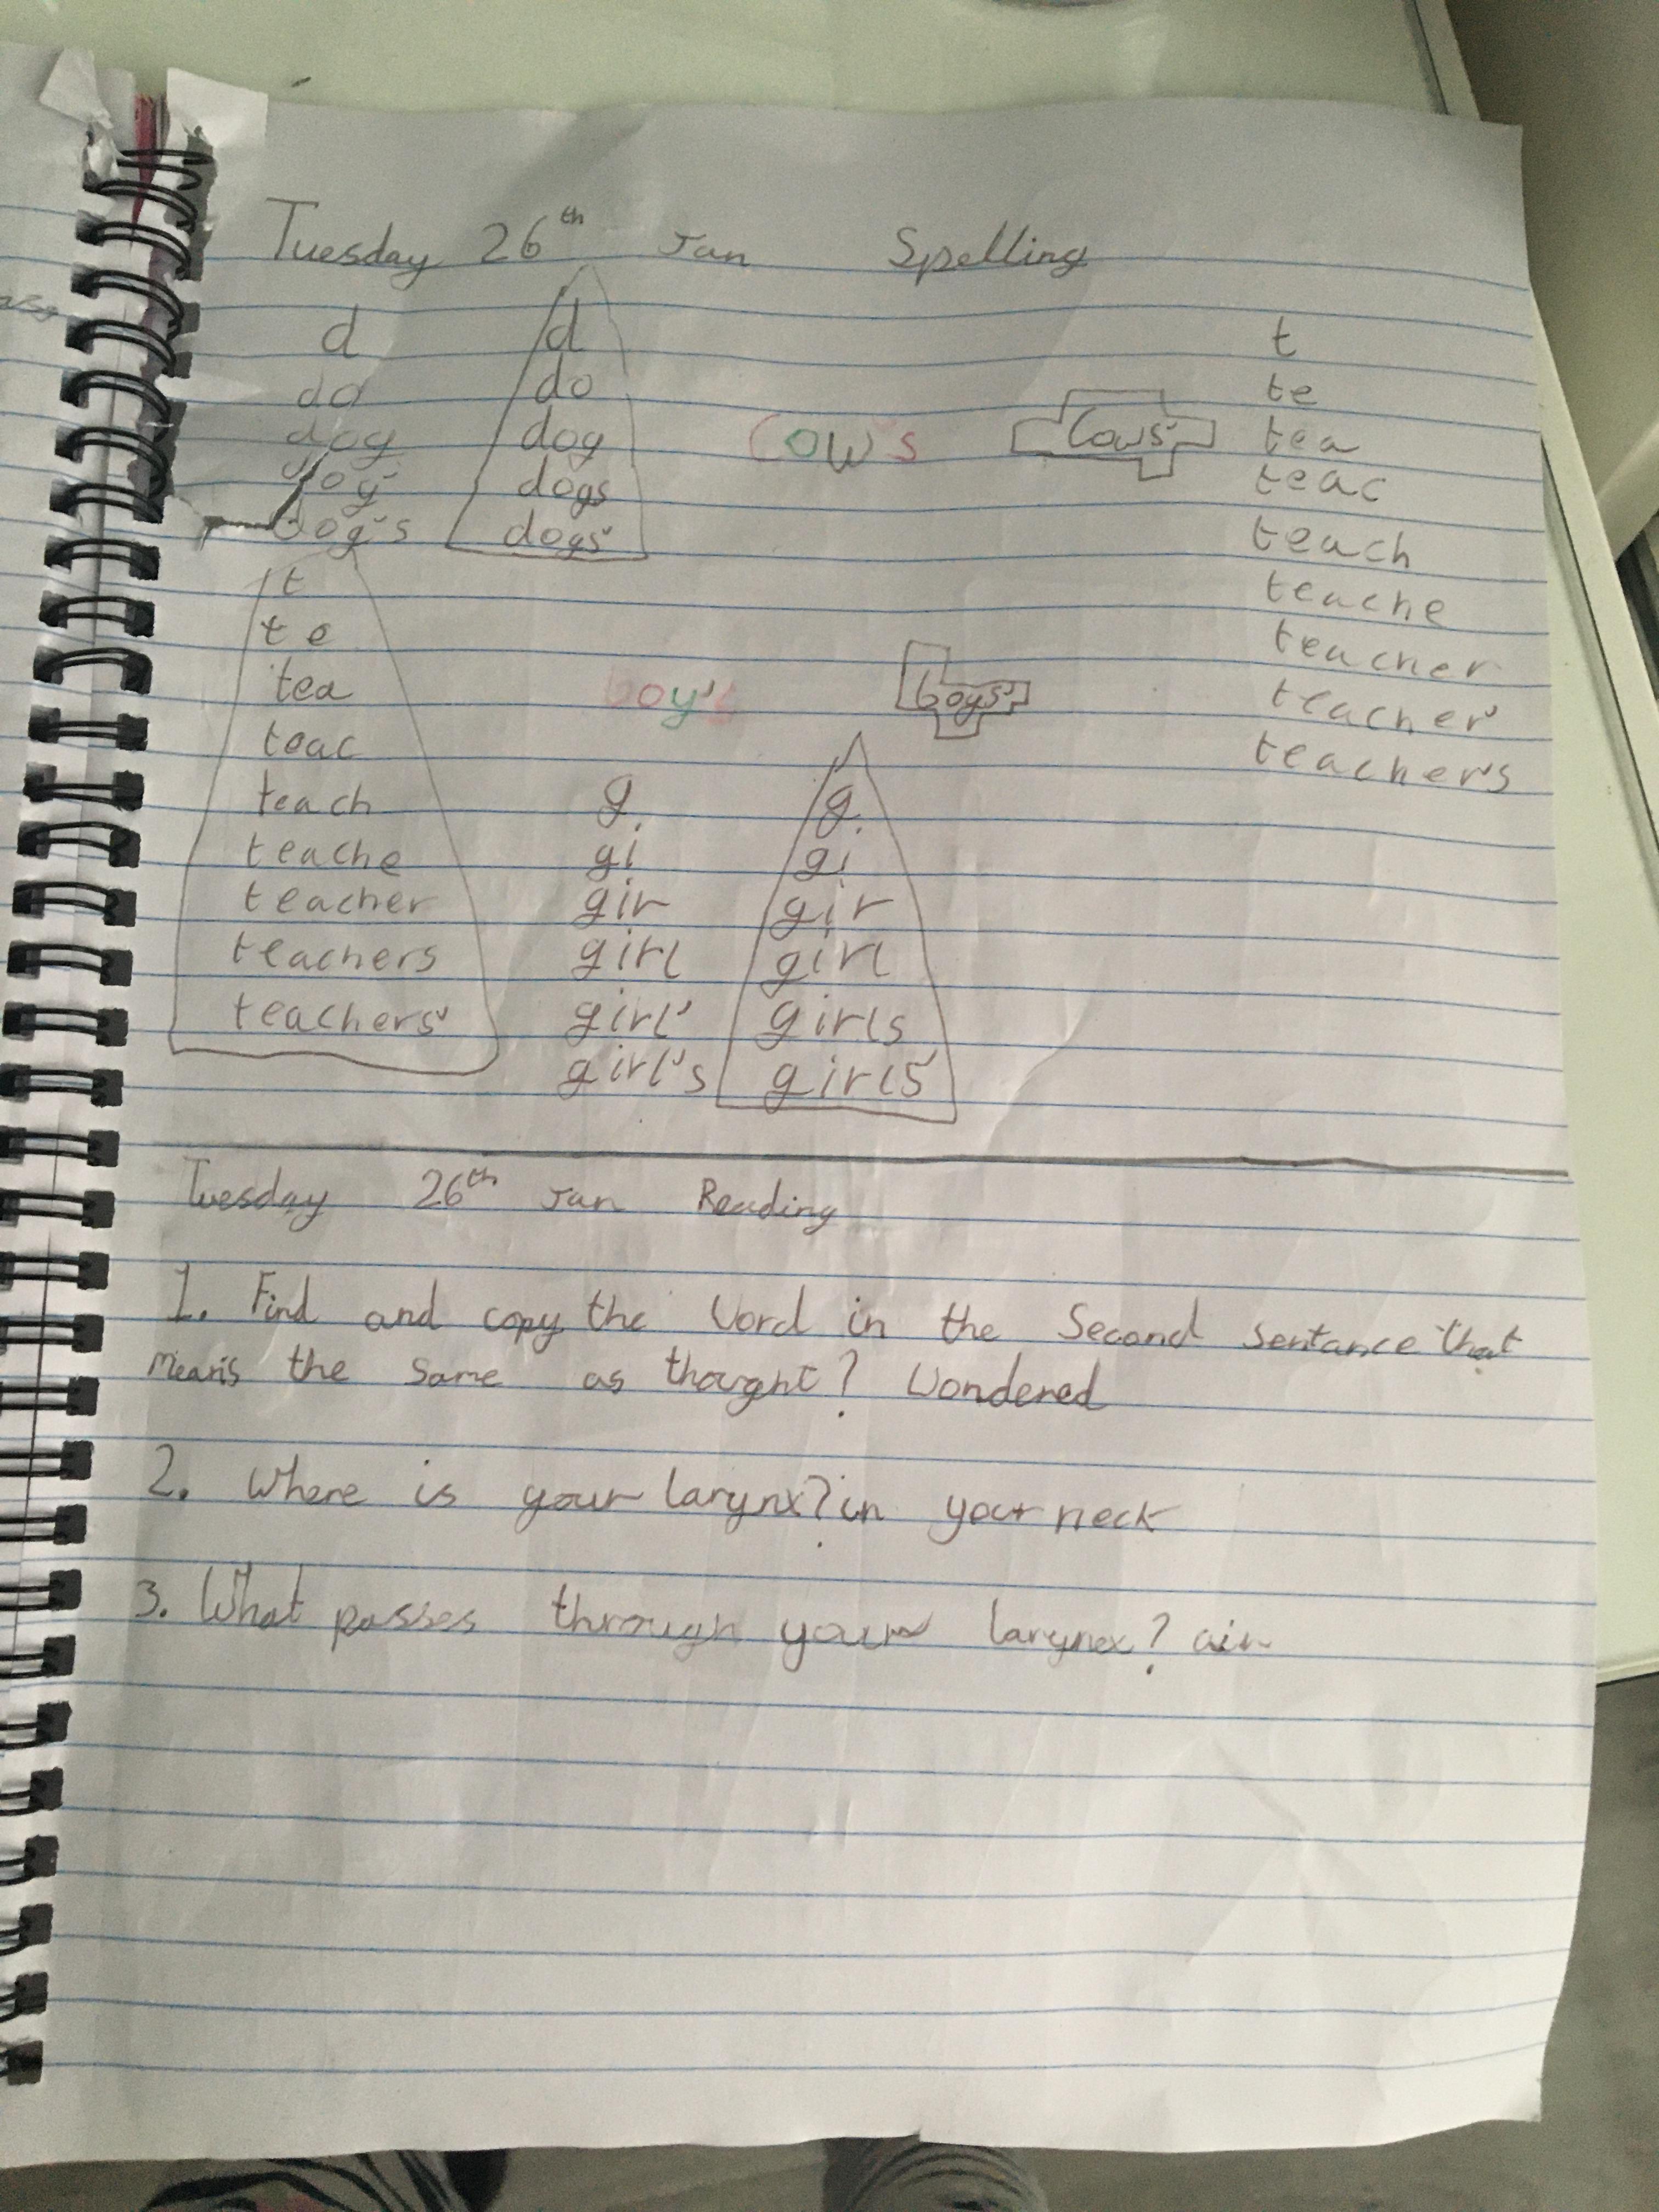 Tuesday 26th Jan Spelling
d
do
dog
dog'
dog's
d
do
dog
dogs
dogs'
cow's
cows'
t
te
tea
teac
teach
teache
teacher
teacher'
teacher's
t
te
tea
teac
teach
teache
teacher
teachers
teachers'
boy's
boys'
g
gi
gir
girl
girl'
girl's
g
gi
gir
girl
girls
girls'
Tuesday 26th Jan Reading
1. Find and copy the Word in the Second sentance that
means the same as thought? Wondered
2. Where is your larynx? in your neck
3. What passes through your larynex? air